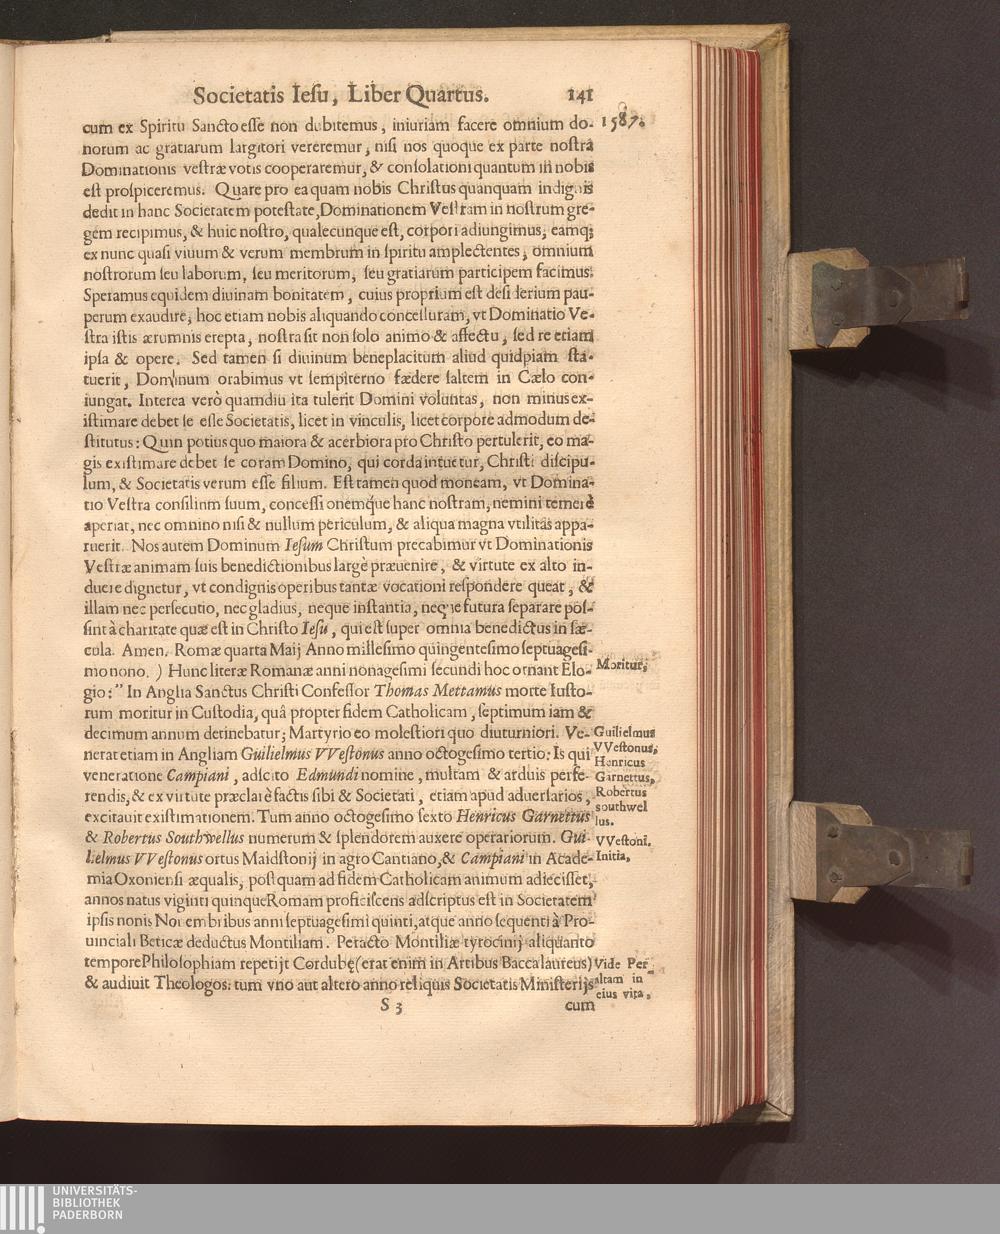 Societatis Iesu, Liber Quartus. 141
1587.
cum ex Spiritu Sancto esse non dubitemus, iniuriam facere omnium do-
norum ac gratiarum largitori vereremur, nisi nos quoque ex parte nostra
Dominationis vestræ votis cooperaremur, & consolationi quantum in nobis
est prospiceremus. Quare pro ea quam nobis Christus quanquam indignis
dedit in hanc Societatem potestate, Dominationem Vestram in nostrum gre-
gem recipimus, & huic nostro, qualecunque est, corpori adiungimus, eamq;
ex nunc quasi viuum & verum membrum in spiritu amplectentes, omnium
nostrorum seu laborum, seu meritorum, seu gratiarum participem facimus.
Speramus equidem diuinam bonitatem, cuius proprium est desiderium pau-
perum exaudire, hoc etiam nobis aliquando concessuram, vt Dominatio Ve-
stra istis ærumnis erepta, nostra sit non solo animo & affectu, sed re etiam
ipsa & opere. Sed tamen si diuinum beneplacitum aliud quidpiam sta-
tuerit, Dominum orabimus vt sempiterno fædere saltem in Cælo con-
iungat. Interea verò quamdiu ita tulerit Domini voluntas, non minus ex-
istimare debet se esse Societatis, licet in vinculis, licet corpore admodum de-
stitutus: Quin potius quo maiora & acerbiora pro Christo pertulerit, eo ma-
gis existimare debet se coram Domino, qui corda intuetur, Christi discipu-
lum, & Societatis verum esse filium. Est tamen quod moneam, vt Domina-
tio Vestra consilium suum, concessionemque hanc nostram, nemini temerè
aperiat, nec omnino nisi & nullum periculum, & aliqua magna vtilitas appa-
ruerit. Nos autem Dominum Iesum Christum precabimur vt Dominationis
Vestræ animam suis benedictionibus largè præuenire, & virtute ex alto in-
duere dignetur, vt condignis operibus tantæ vocationi respondere queat, &
illam nec persecutio, nec gladius, neque instantia, neque futura separare pos-
sint à charitate quæ est in Christo Iesu, qui est super omnia benedictus in sæ-
cula. Amen. Romæ quarta Maij Anno millesimo quingentesimo septuagesi-
mo nono. ) Hunc literæ Romanæ anni nonagesimi secundi hoc ornant Elo-
Moritur;
gio: " In Anglia Sanctus Christi Confessor Thomas Mettamus morte Iusto-
rum moritur in Custodia, quâ propter fidem Catholicam, septimum iam &
decimum annum detinebatur; Martyrio eo molestiori quo diuturniori. Ve-
nerat etiam in Angliam Guilielmus VVestonus anno octogesimo tertio: Is qui
veneratione Campiani, adscito Edmundi nomine, multam & arduis perfe-
rendis, & ex virtute præclarè factis sibi & Societati, etiam apud aduersarios,
excitauit existimationem. Tum anno octogesimo sexto Henricus Garnettus
& Robertus Southwellus numerum & splendorem auxere operariorum. Gui-
Guilielmus
VVestonus,
Henricus
Garnettus,
Robertus
southwel
lus.
lielmus VVestonus ortus Maidstonij in agro Cantiano, & Campiani in Acade-
mia Oxoniensi æqualis, postquam ad fidem Catholicam animum adiecisset,
VVestoni.
Initia,
annos natus viginti quinque Romam proficiscens adscriptus est in Societatem
ipsis nonis Nouembribus anni septuagesimi quinti, atque anno sequenti à Pro-
uinciali Beticæ deductus Montiliam. Peracto Montiliæ tyrocinij aliquanto
tempore Philosophiam repetijt Cordubę (erat enim in Artibus Baccalaureus)
& audiuit Theologos: tum vno aut altero anno reliquis Societatis Ministerijs
Vide Per
altam in
eius vita,
S 3 cum
UNIVERSITÄTS-
BIBLIOTHEK
PADERBORN